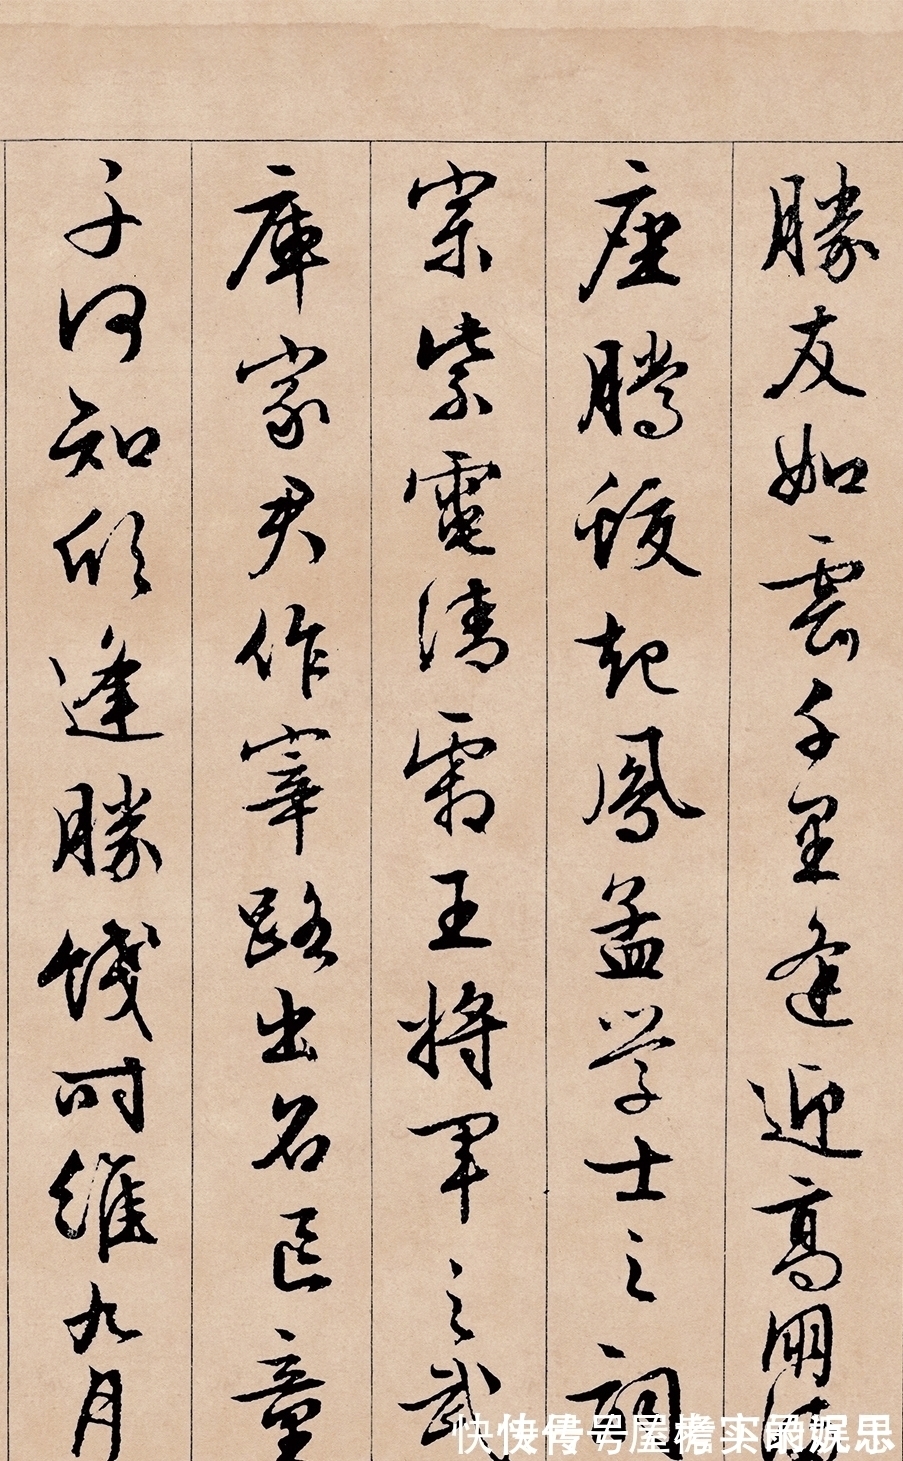 勝友如雲千里逢迎高朋滿
座騰蛟起鳳孟学士之詞
宗紫電清霜王将軍之武
庫家君作宰路出名區童
子何知躬逢勝餞时維九月